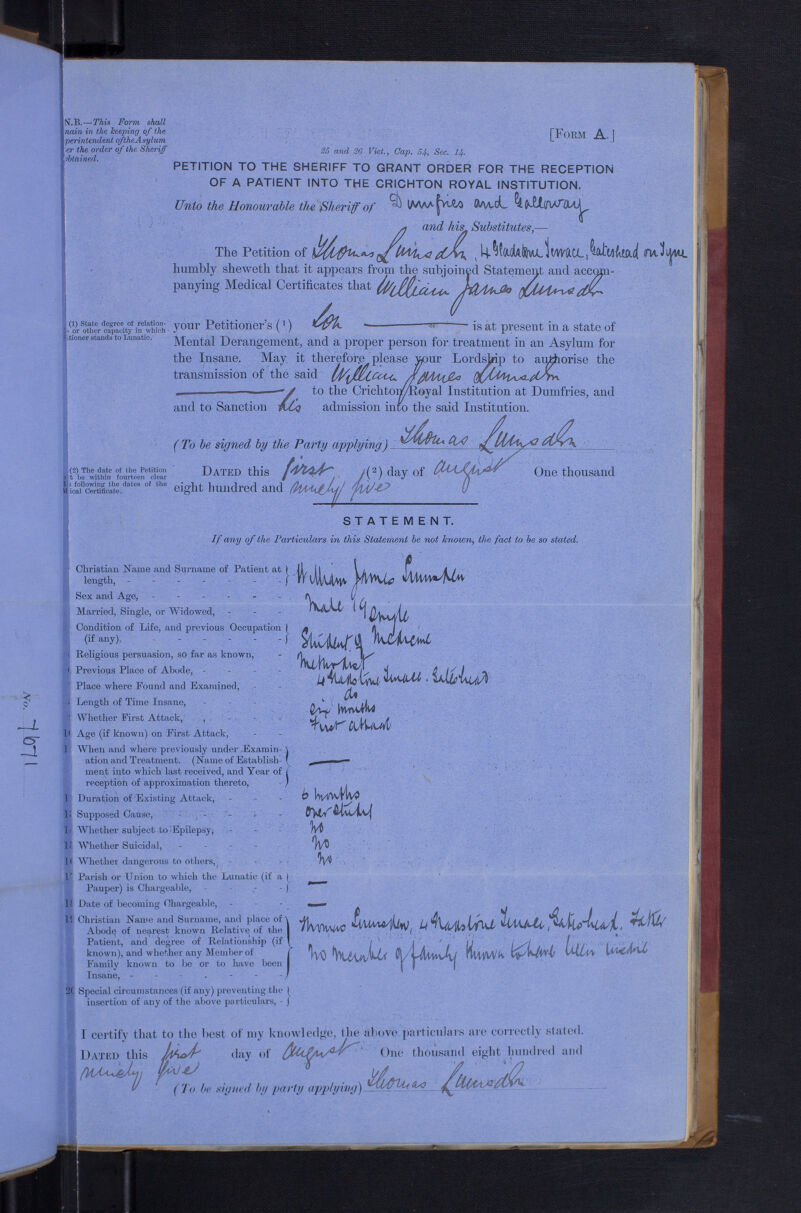 N.B.—This Form shall
nain in the keeping of the
perintendent of the Asylum
er the order of the Sheriff
obtained.
[FORM A.]
25 and 26 Vict., Cap. 54, Sec. 14.
PETITION TO THE SHERIFF TO GRANT ORDER FOR THE RECEPTION
OF A PATIENT INTO THE CRICHTON ROYAL INSTITUTION.
Unto the Honourable the Sheriff of Dumfries and Galloway
and his Substitutes,—
The Petition of Thomas Lumsdon, 4 Gladstone Terrace, Gateshead on Tyne
humbly sheweth that it appears from the subjoined Statement and accom-
panying Medical Certificates that William James Lumsdon
(1) State degree of relation-
or other capacity in which
tioner stands to Lunatic.
your Petitioner's (1) Son is at present in a state of
Mental Derangement, and a proper person for treatment in an Asylum for
the Insane. May it therefore please your Lordship to authorise the
transmission of the said William James Lumsdon
to the Crichton Royal Institution at Dumfries, and
and to Sanction his admission into the said Institution.
(To be signed by the Party applying) Thomas Lumsdon
(2) The date of the Petition
t be within fourteen clear
s following the dates of the
ical Certificate.
DATED this first (2) day of August One thousand
eight hundred and ninety five
STATEMENT.
If any of the Particulars in this Statement be not known, the fact to be so stated.
Christian Name and Surname of Patient at
length, - William James Lumsden
Sex and Age, - Male 19
Married, Single, or Widowed, - Single
Condition of Life, and previous Occupation
(if any). - Student of Medicine
Religious persuasion, so far as known, - Methodist
Previous Place of Abode, - 4 Gladstone Terrace. Gateshead
Place where Found and Examined, do
Length of Time Insane, - Six months
Whether First Attack, - First attack
Age (if known) on First Attack, -
When and where previously under Examin-
ation and Treatment. (Name of Establish-
ment into which last received, and Year of
reception of approximation thereto, —
Duration of Existing Attack, - 6 months
Supposed Cause, - over study
Whether subject to Epilepsy, - No
Whether Suicidal, - No
Whether dangerous to others, - No
Parish or Union to which the Lunatic (if a
Pauper) is Chargeable, - —
Date of becoming Chargeable, - —
19 Christian Name and Surname, and place of
Abode of nearest known Relative of the
Patient, and degree of Relationship (if
known), and whether any Member of
Family known to be or to have been
Insane, -
Thomas Lumsden, 4 Gladstone Terrace, Gateshead, Father
No member of family known to have been insane
20 Special circumstances (if any) preventing the
insertion of any of the above particulars, -
I certify that to the best of my knowledge, the above particulars are correctly stated.
DATED this first day of August One thousand eight hundred and
ninety five
(To be signed by party applying) Thomas Lumsdon
No. 7671